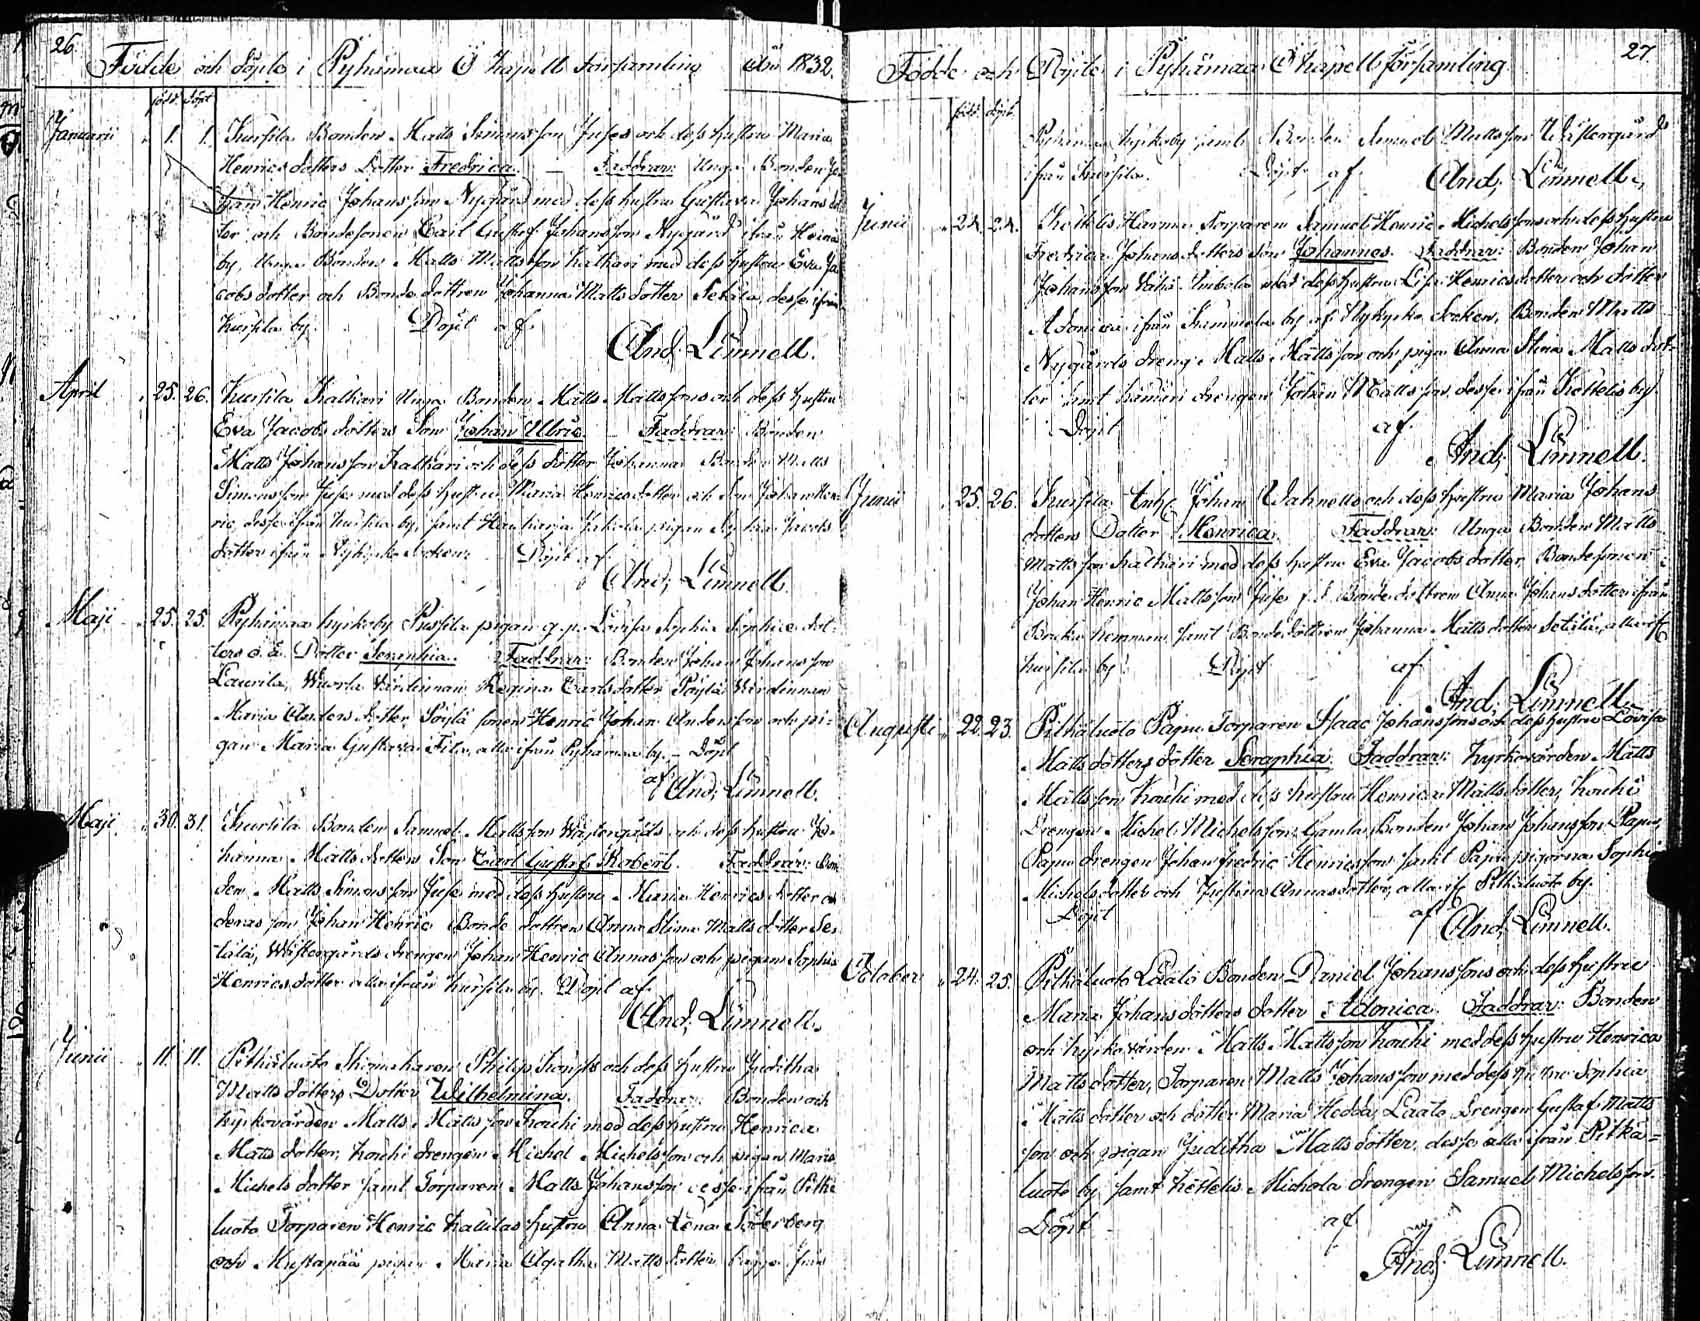 26.
Födde och döpte i Pyhämaa Ö Kapell Församling År 1832.
född. döpt
Januarii 1. 1. Kursila Bonden Matts Simonsson Juses och dess hustru Maria
Henricsdotters Dotter Fredrica. — Faddrar: Unga Bonden
Henric Johansson Nygård med dess hustru Gustava Johans dot
ter och Bondesonen Carl Gustaf Johansson Nygård ifrån
by, Unga Bonden Matts Mattsson Kalhari med dess hustru Eva Ja
cobsdotter och Bonde dottren Johanna Matts dotter Setälä, desse ifrån
Kursila by. Döpt af
And. Linnell.
April 25. 26. Kursila Kalhari Unga Bonden Matts Mattssons och dess hustru
Eva Jacobsdotters Son Johan Ulric. Faddrar: Bonden
Matts Johansson Kalhari och dess dotter Johanna Bonden Matts
Simonsson Juse med dess hustru Maria Henricsdotter och Son Johan Hen
ric, desse ifrån Kursila by, samt pigan Jacobs
dotter ifrån Nykyrko Socken. Döpt af
And. Linnell.
Maji 25. 25. Pyhämaa kyrkoby pigan Lovisa Sophia dot-
ters o. ä. Dotter Seraphia. Faddrar: Bonden Johan Johansson
Laurila, Wärdinnan Regina Carlsdotter Söylä Wärdinnan
Maria Anders dotter Söylä sonen Henric Johan Andersson och pi-
gan Maria Gustava alla ifrån Pyhämaa by. — Döpt
af And. Linnell.
Maji 30. 31. Kursila Bonden Samuel Mattsson Westergårds och dess hustru Jo-
hanna Mattsdotters Son Carl Gustaf Robert. Faddrar: Bon
den Matts Simonsson Juse med dess hustru Maria Henricsdotter och
deras son Johan Henric, Bonde dottren Anna Stina Matts dotter Se-
tälä, Westergårds drengen Johan Henric Annasson och pigan Sophia
Henricsdotter alla ifrån Kursila by. Döpt af
And. Linnell.
Junii 11. 11. Pitkäluoto Philip och dess hustru Juditha
Matts dotters Dotter Wilhelmina. Faddrar: Bonden och
kyrkovärden Matts Mattsson Kouhi med dess hustru Henrica
Matts dotter, Kouhi drengen Michel Michelsson och pigan Maria
Michels dotter samt Torparen Matts Johansson desse ifrån Pitkä
luoto Torparen Henric hustru Anna Lena Söderberg
och pigan Maria Agatha Matts dotter bägge ifrån
27.
Födde och Döpte i Pyhämaa Ö Kapell församling
född. döpt.
Pyhämaa kyrkoby samt Bonden Samuel Mattsson Westergårds
ifrån Kursila. Döpt af And. Linnell.
Junii 24. 24. Kettelis Torparen Samuel Henric Michelssons och dess hustru
Fredrica Johans dotters Son Johannes. Faddrar: Bonden Johan
Johansson med dess hustru Lisa Henricsdotter och dotter
Adonica ifrån by af Nykyrko Socken, Bonden Matts
Nygårds dreng Matts Mattsson och pigan Anna Stina Matts dot-
ter samt drengen Johan Mattsson desse ifrån Kettelis by.
Döpt af
And. Linnell.
Junii 25. 26. Kursila Johan och dess hustru Maria Johans
dotters Dotter Henrica. Faddrar: Unga Bonden Matts
Mattsson Kalhari med dess hustru Eva Jacobs dotter, Bondesonen
Johan Henric Mattsson Juse, Bonde dottren Anna Johans dotter ifrån
hemman samt Bonde dottren Johanna Matts dotter Setälä, alla
Kursila by. Döpt af
And. Linnell.
Augusti 22. 23. Pitkäluoto Papu Torparen Isaac Johanssons och dess hustru Lovisa
Matts dotters dotter Seraphia. Faddrar: Kyrkovärden Matts
Mattsson Kouhi med dess hustru Henrica Matts dotter, Kouhi
drengen Michel Michelsson, Gamla Bonden Johan Johansson Papu,
Papu drengen Johan Fredric Henricsson samt Papu pigorna Sophia
Michelsdotter och Justina Annasdotter, alla if. Pitkäluoto by.
Döpt af And. Linnell.
October 24. 25. Pitkäluoto Laato Bonden Daniel Johanssons och dess hustru
Maria Johans dotters dotter Adonica. Faddrar: Bonden
och kyrkovärden Matts Mattsson Kouhi med dess hustru Henrica
Matts dotter, Torparen Matts Johansson med dess hustru Sophia
Matts dotter och dotter Maria Hedda, Laato drengen Gustaf Matts
son och pigan Juditha Matts dotter, desse alla ifrån Pitkä=
luoto by samt Kettelis Michola drengen Samuel Michelsson.
Döpt af
And. Linnell.